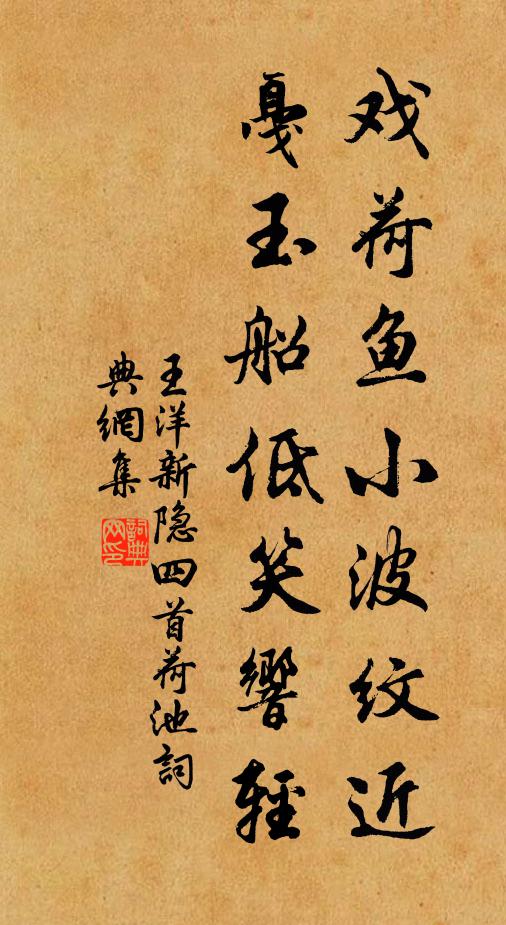 戏荷鱼小波纹近
戛玉船低笑響輕
王洋新隐四首荷池詞
典網集
詞典网印